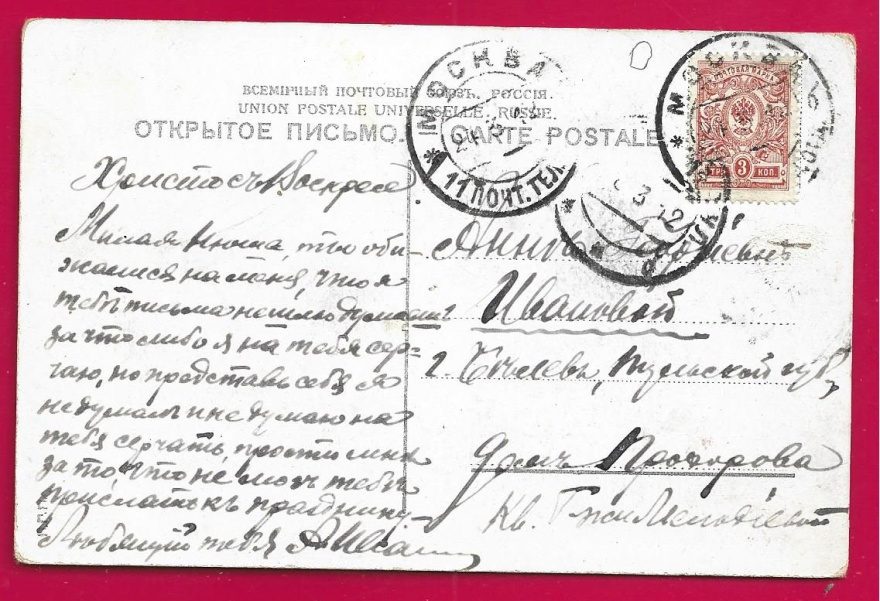 ВСЕМІРНЫЙ ПОЧТОВЫЙ СОЮЗЪ. РОССІЯ.
UNION POSTALE UNIVERSELLE. RUSSIE.
ОТКРЫТОЕ ПИСЬМО. CARTE POSTALE
МОСКВА
11 ПОЧТ. ТЕЛ
МОСКВА
ПОЧТОВАЯ МАРКА
3 КОП.
Христосъ Воскресе
Милая Нюша, ты оби-
жалися на меня, что я
тебѣ письма не шлю думаешь
за что либо я на тебя сер-
чаю, но представь себѣ я
не думалъ и не думаю на
тебя серчать, прости меня
за то что не могъ тебѣ
поислать къ празднику
Любящій тебя
Аннѣ
Ивановой
г. Бѣлевъ, Тульской губ,
домъ Прохорова
Кв. Г-жи